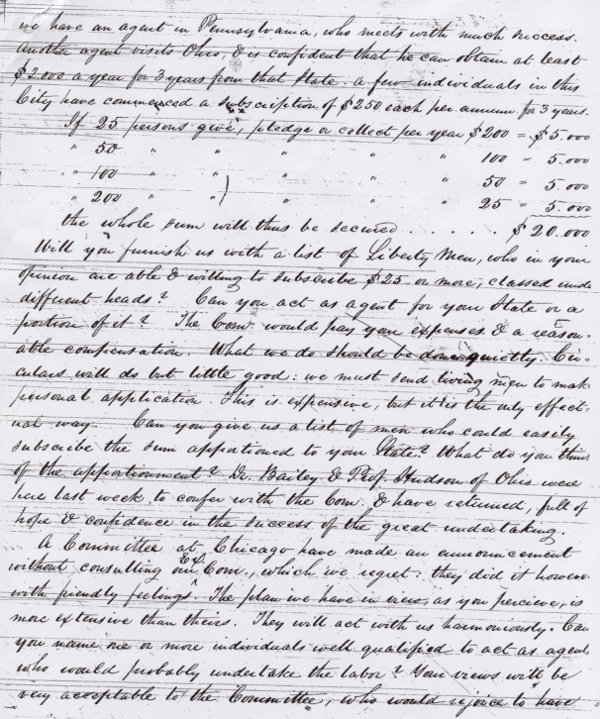 we have an agent in Pennsylvania, who meets with much success.
Another agent visits Ohio, & is confident that he can obtain at least
$2.000 a year for 3 years from that State. a few individuals in this
City have commenced a subscription of $250 each per annum for 3 years.
If 25 persons give, pledge or collect per year $200 = $5.000
" 50 " " " " " 100 = 5.000
" 100 " " " " " 50 = 5.000
" 200 " " " " " 25 = 5.000
the whole sum will thus be secured . . . . . . $20.000
Will you furnish us with a list of Liberty Men, who in your
opinion are able & willing to subscribe $25 or more, classed unde
different heads? Can you act as agent for your State or a
portion of it? The Com. would pay your expenses & a reason-
able compensation. What we do should be done quietly. Cir-
culars will do but little good: we must send living men to mak
personal application. This is expensive, but it is the only effect-
ual way. Can you give us a list of men who could easily
subscribe the sum apportioned to your State? What do you think
of the apportionment? Dr. Bailey & Prof. Hudson of Ohio were
here last week to confer with the Com. & have returned, full of
hope & confidence in the success of the great undertaking.
A Committee at Chicago have made an announcement
without consulting our Ex. Com., which we regret: they did it howeve
with friendly feelings. The plan we have in view, as you perceive, is
more extensive than theirs. They will act with us harmoniously. Can
you name one or more individuals well qualified to act as agent,
who would probably undertake the labor? Your views will be
very acceptable to the Committee, who would rejoice to have